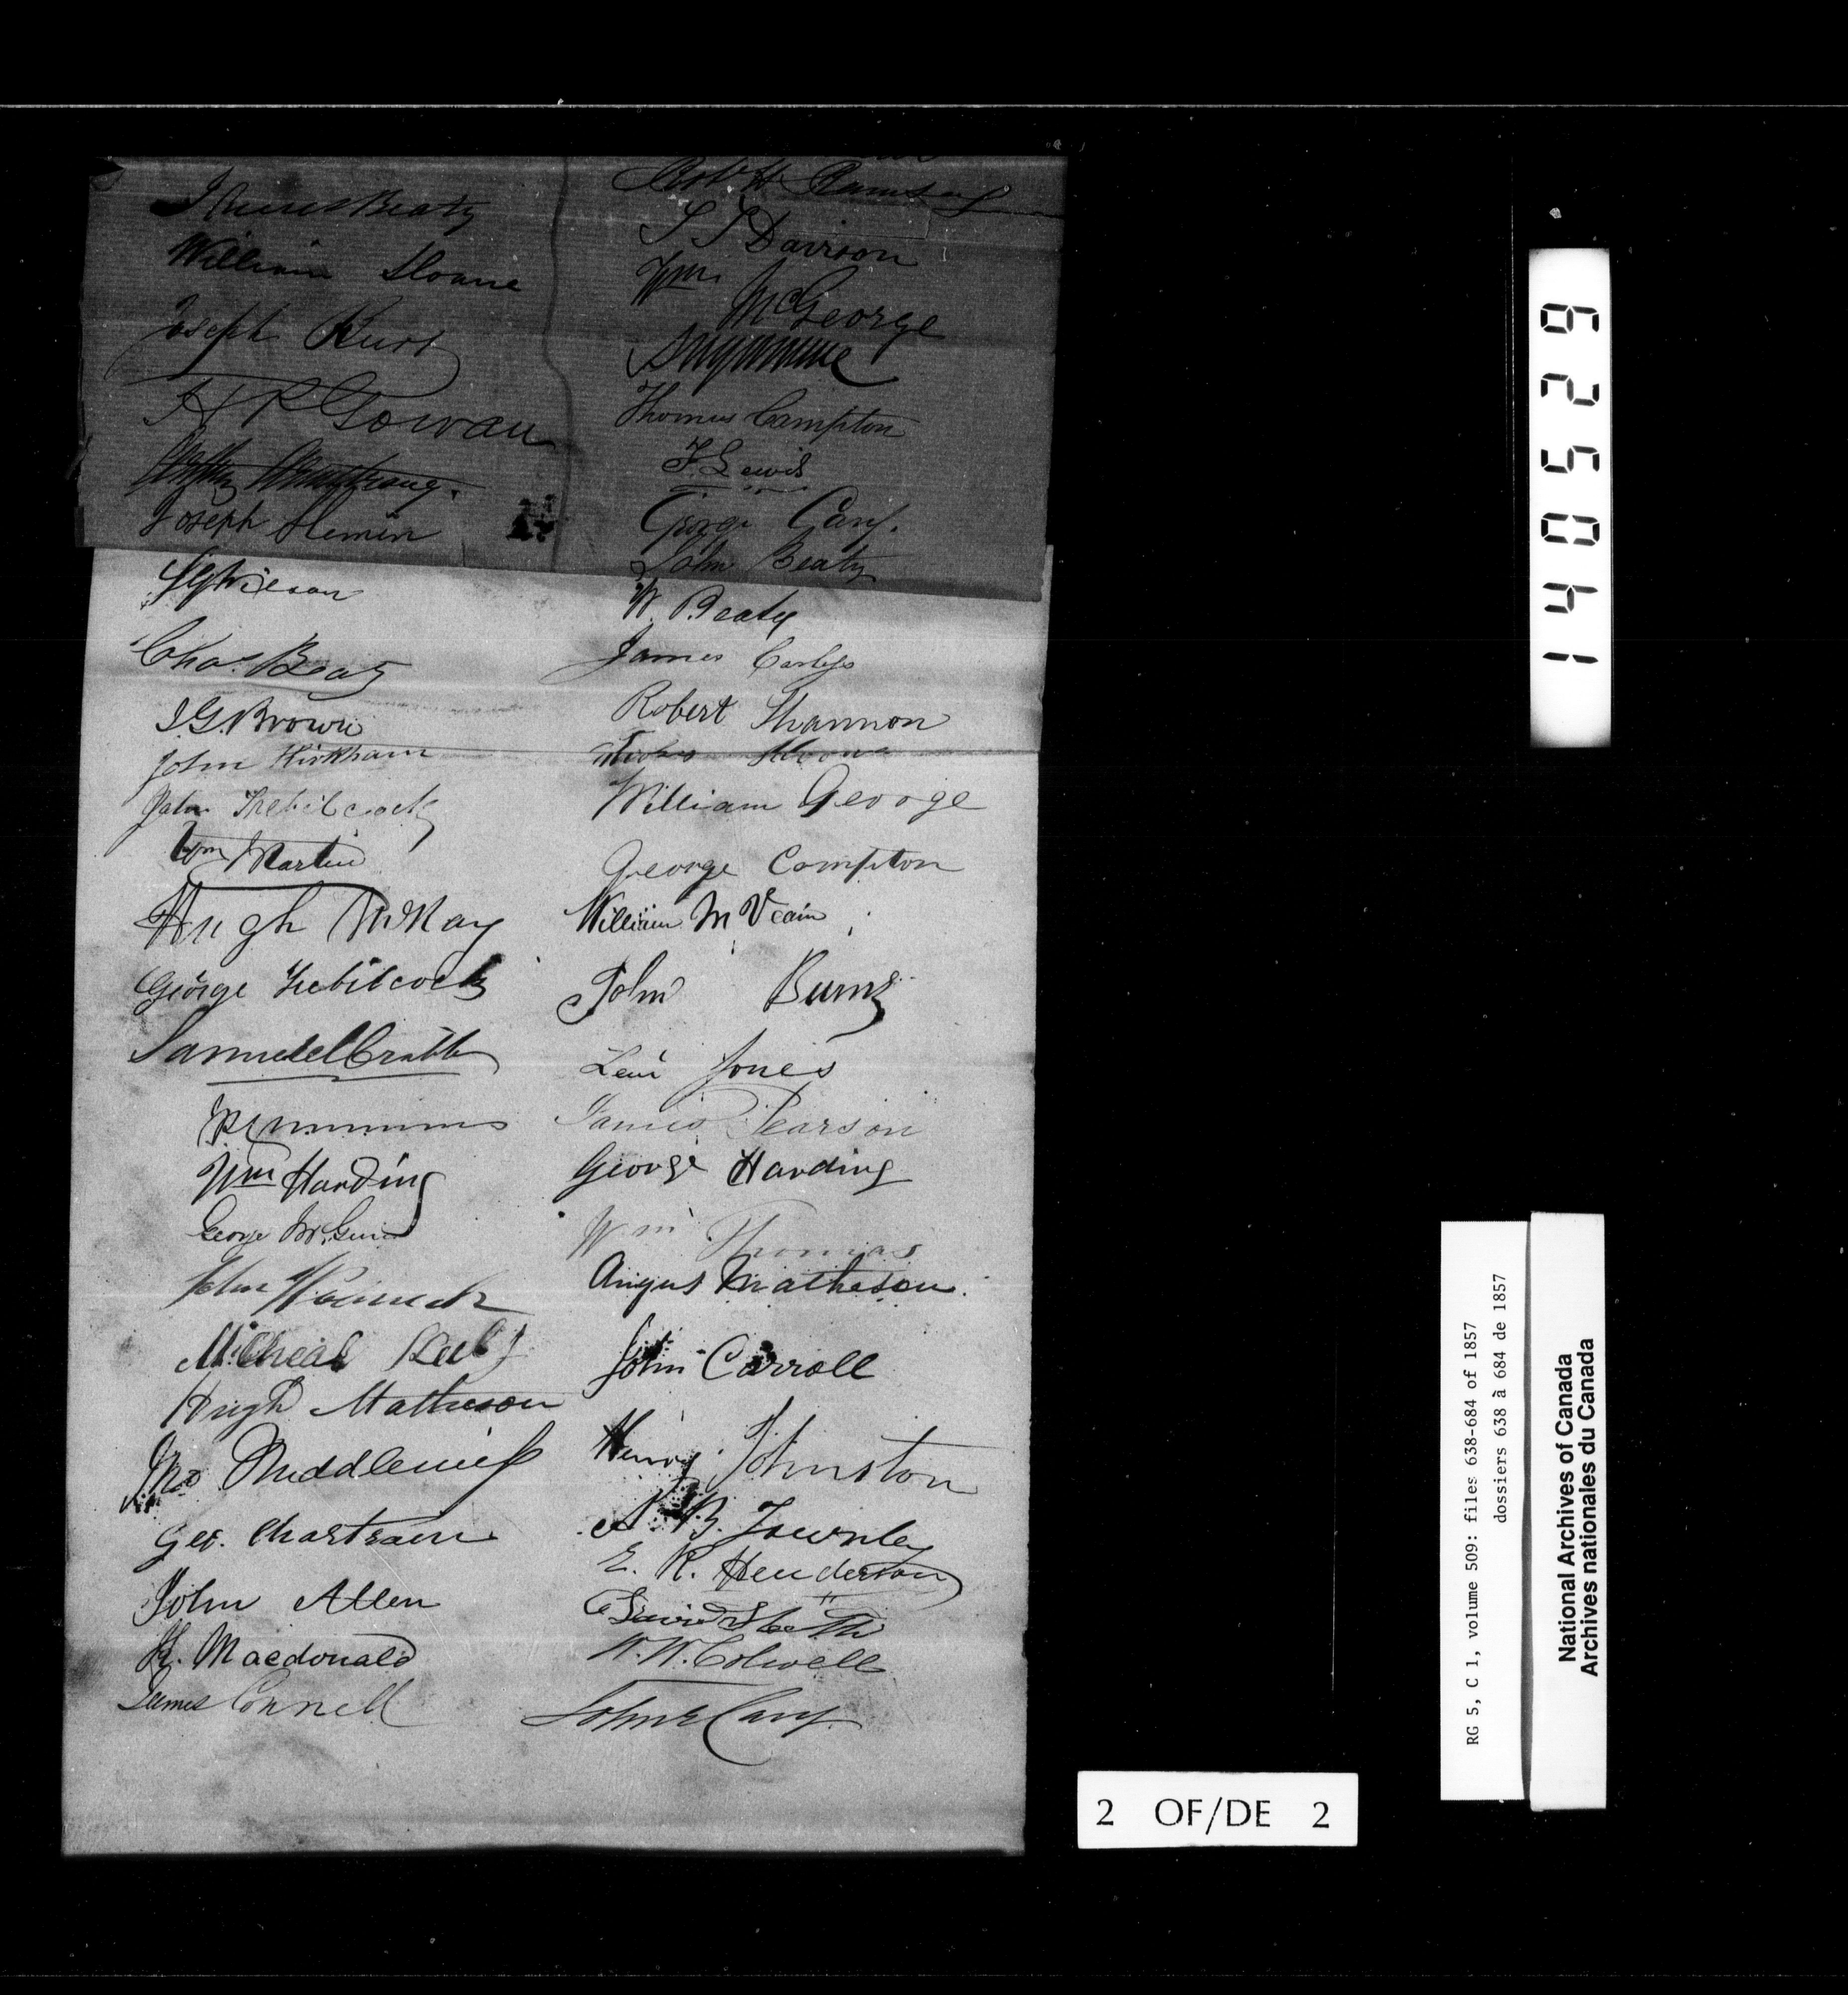 Beaty
William Sloane
Joseph
H R Gowan
Armstrong.
Joseph Slemin
Chas. Beaty
J. G. Brown
John Kirkham
John Trebilcock
Wm Martin
Hugh McKay
George Trebilcock
Samuel Crabb
Wm Harding
George
John
Micheal
Hugh Matheson
Jno Middlemiss
Geo. Chartrain
John Allen
H. Macdonald
James Connell
Ramsay
Davison
Wm McGeorge
Thomas Compton
F. Lewis
George Cary.
John Beaty
W. Beaty
James
Robert Shannon
William George
George Compton
William McVean
John Burns
Levi Jones
James Pearson
George Harding
Wm Thomas
Angus Matheson.
John Carroll
Henry Johnston
A. B. Townley
E. R. Henderson
David
W. W. Colwell
John Cary
140529
RG 5, C 1, volume 509: files 638-684 of 1857
dossiers 638 à 684 de 1857
National Archives of Canada
Archives nationales du Canada
2 OF/DE 2